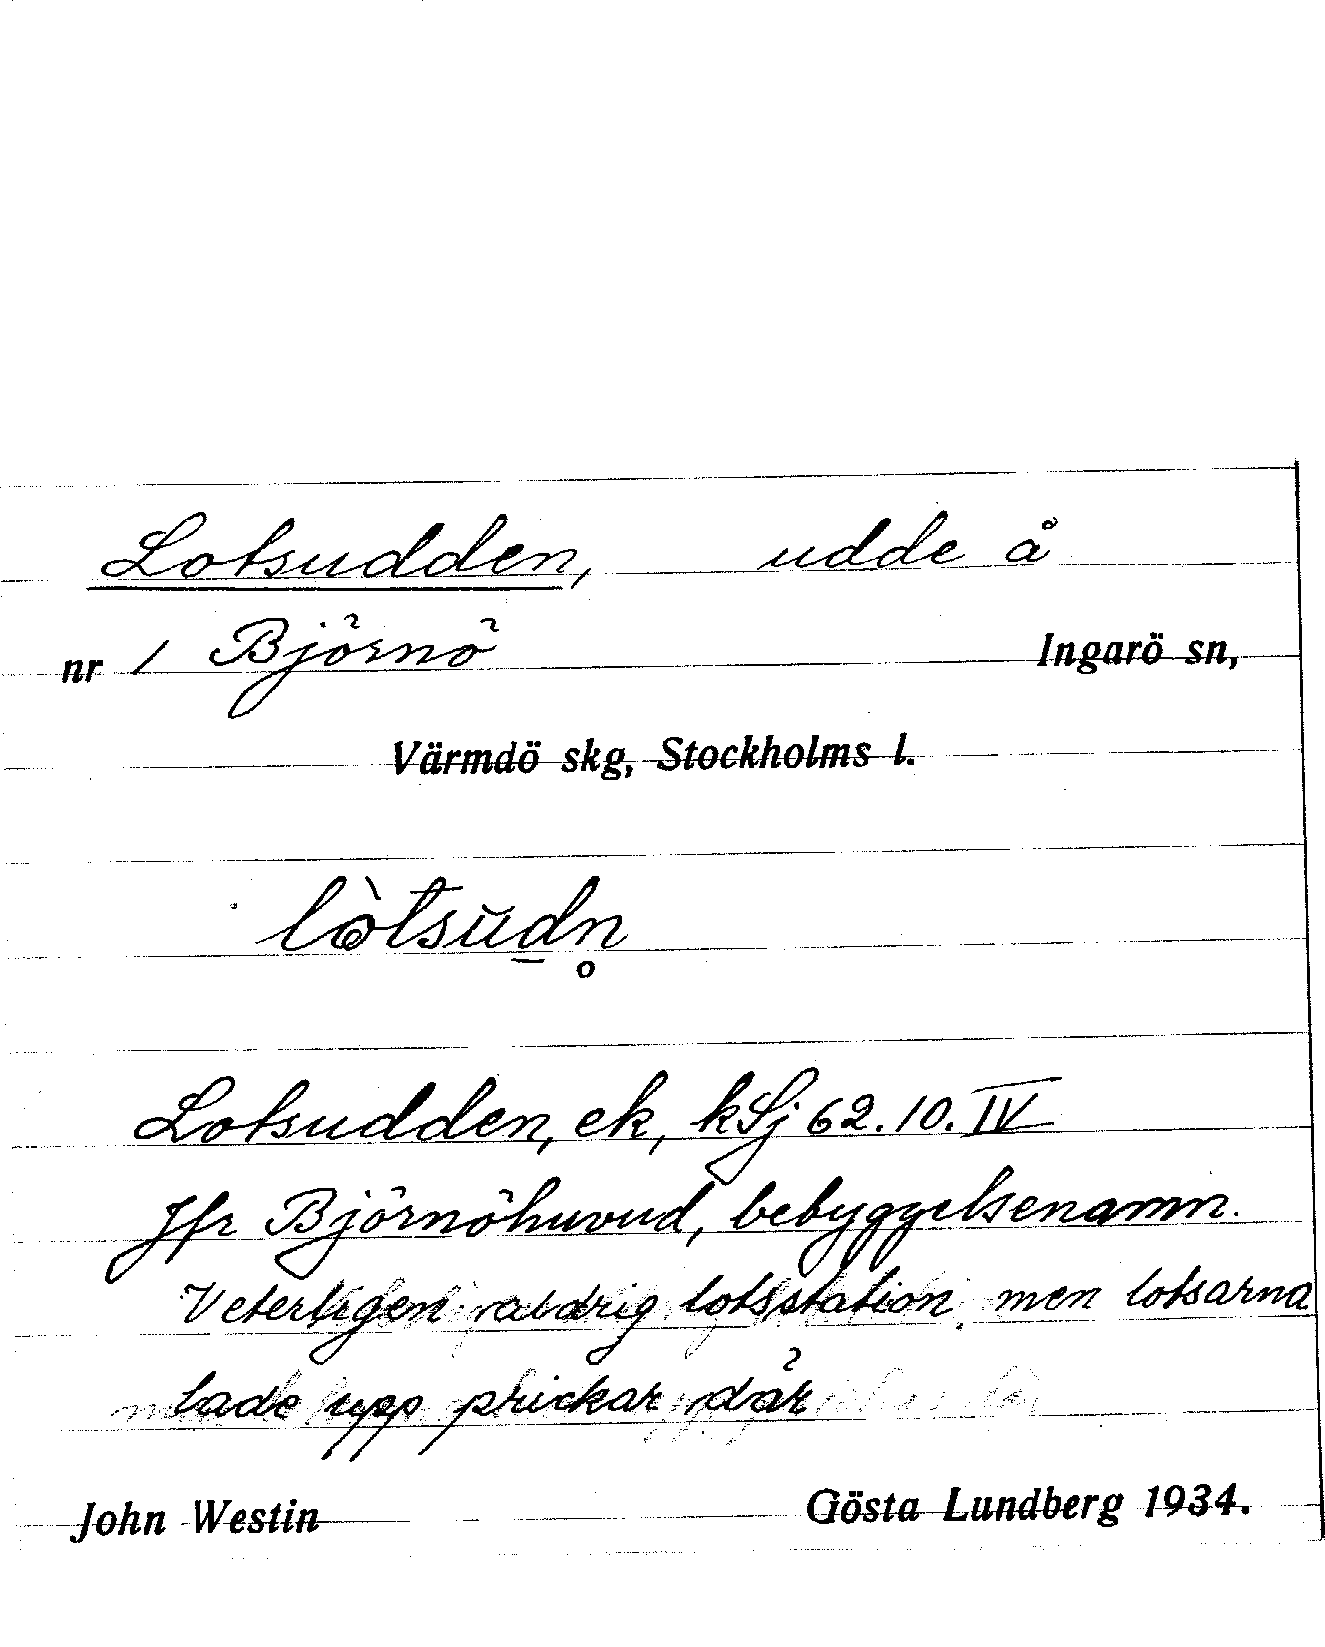 Lotsudden, udde å
nr 1 Björnö Ingarö sn,
Värmdö skg, Stockholms l.
lòtsŭd̲n̥
Lotsudden, ek, kSj 62.10.IV
Jfr Björnöhuvud, bebyggelsenamn.
Veterligen aldrig lotsstation, men lotsarna
lade upp prickar där
John Westin Gösta Lundberg 1934.